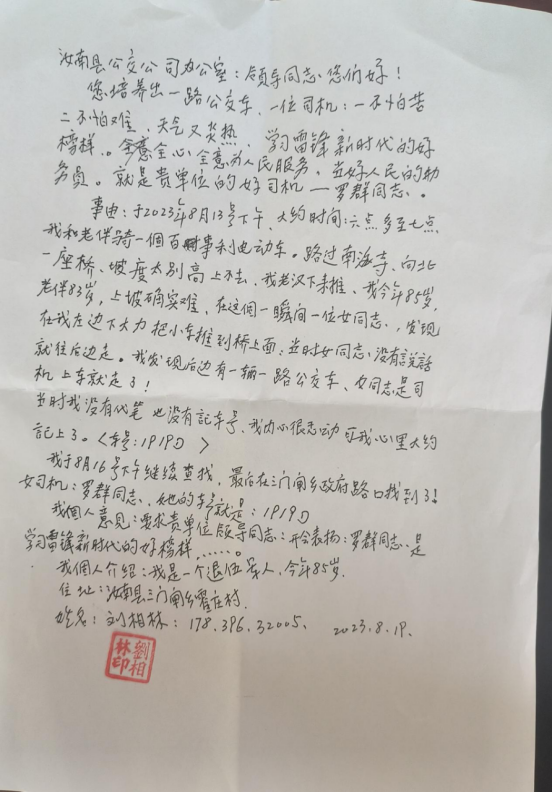 汝南县公交公司办公室：领导同志、您们好！
您培养出一路公交车、一位司机：一不怕苦
二不怕难、天气又炎热、学习雷锋新时代的好
榜样。全意全心全意为人民服务。当好人民的勤
务员。就是贵单位的好司机—罗群同志、。
事由：于2023年8月13号下午、大约时间：六点多至七点
我和老伴骑一個百事利电动车。路过南海寺、向北
一座桥、坡度太别高上不去、我老汉下来推、我今年85岁，
老伴83岁，上坡确实难、在这個一瞬间一位女同志、，发现
在我左边下大力把小车推到桥上面；当时女同志、没有説話
就往后边走。我发现后边有一辆一路公交车、女同志是司
机上车就走了！
当时我没有代笔也没有記车号、我内心很感动可我心里大约
記上了。〈车号：1919D〉
我于8月16号下午继续查找，最后在三门闸乡政府路口找到了！
女司机：罗群同志、她的车号就是：1919D
我個人意见：要求贵单位领导同志：开会表扬：罗群同志、是
学习雷锋新时代的好榜样……。
我個人介绍：我是一个退伍军人、今年85岁.
住址：汝南县三门闸乡霍庄村.
姓名：刘相林：178.396.32005、 2023.8.19.
劉相林印